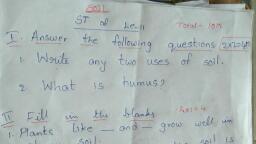 SOIL
ST of
Total - 10M
I. Answer the following questions
1. Write any two uses of soil.
2. What is humus?
II Fill in the blanks
1. Plants like — and — grow well in
soil is